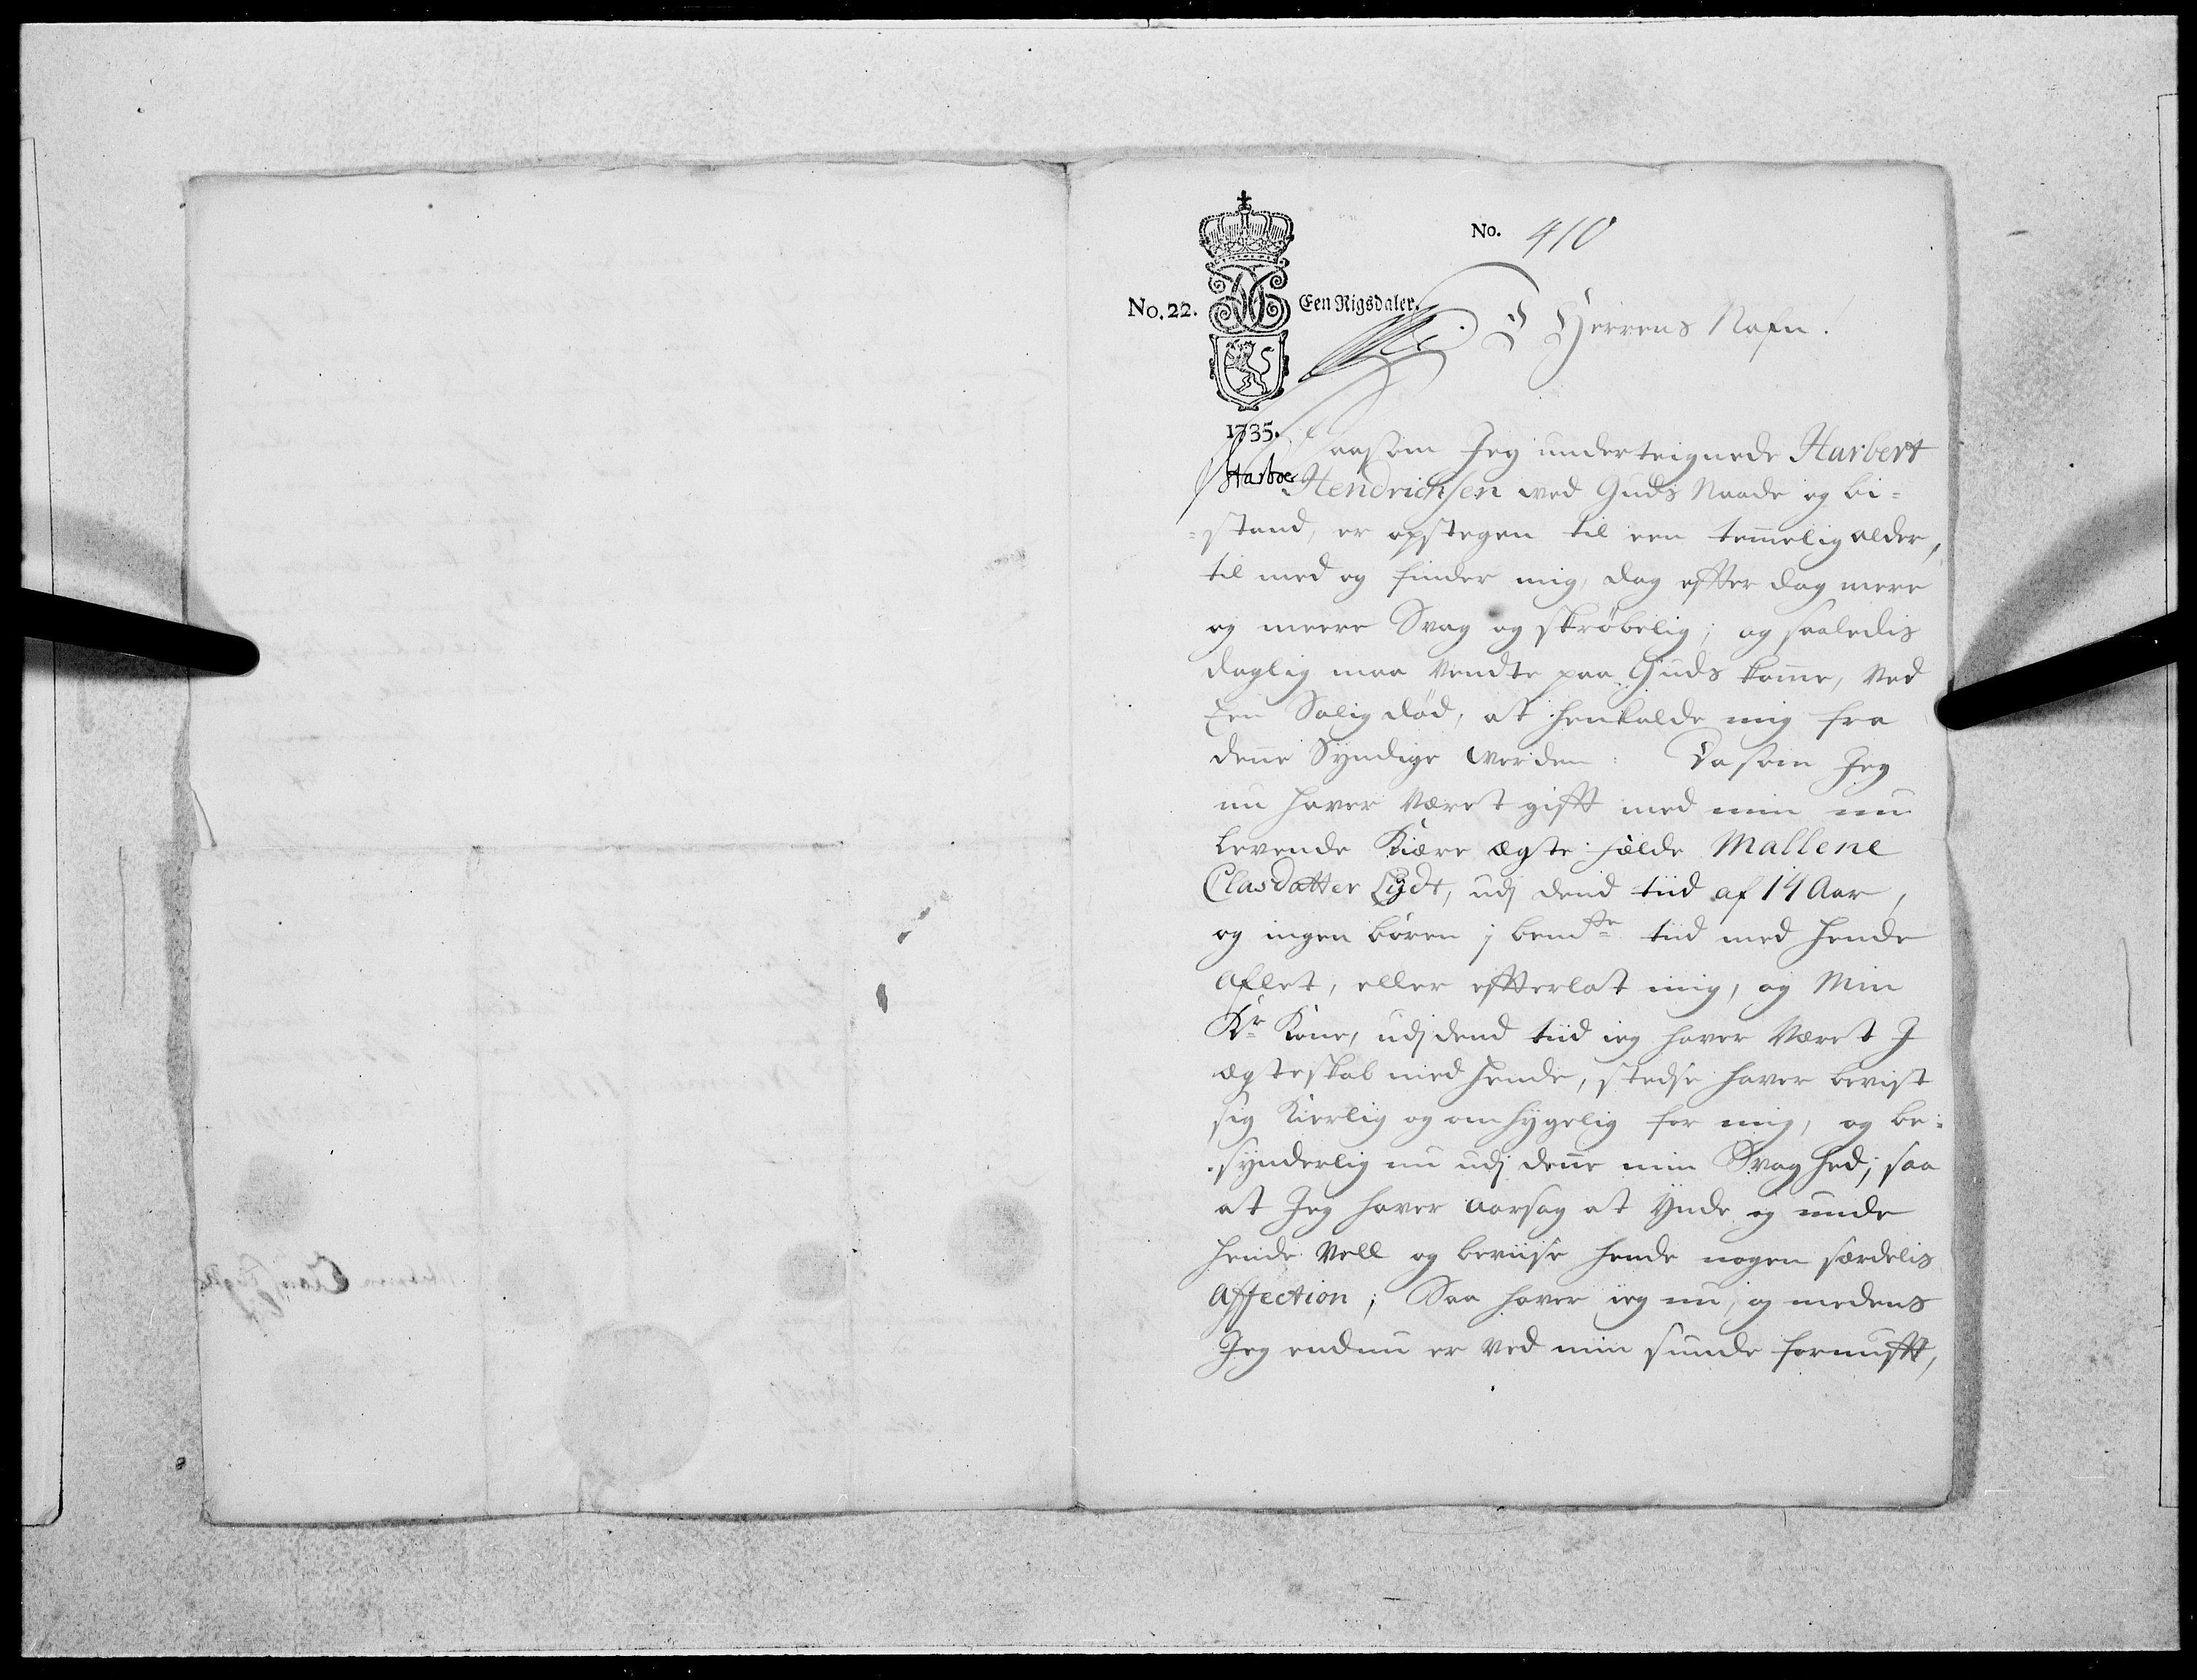 No. 410
No. 22.
Een Rigsdaler.
I Herrens Nafn.
1735.
Saasom Jeg underteignede Harbert
Harboe Hendrichsen ved Guds Naade og bi=
=stand, er opstegen til een temelig alder,
til med og finder mig, dag effter dag mere
og meere Svag og skrøbelig; og saaledis
daglig maa Vendte paa Guds kome, Ved
Een Salig død, at henkalde mig fra
dene Syndige verden: Da som Jeg
nu haver Været gifft med min nu
levende Kiære ægte: fælde Mallene
Clasdatter Lydt, udj dend tiid af 14 Aar,
og ingen børen j bemte tiid med hende
Aflet, eller effterlat mig, og Min
Kr Kone, udj dend tiid ieg haver Været J
ægteskab med hende, stedse haver bevist
sig Kierlig og omhygelig for mig, og be=
=synderlig nu udj dene min Svaghed; saa
at Jeg haver Aarsag at ÿnde og unde
hende Vell og beviise hende nogen særdelis
Affection; Saa haver ieg nu, og medens
Jeg endnu er ved min sunde fornufft,